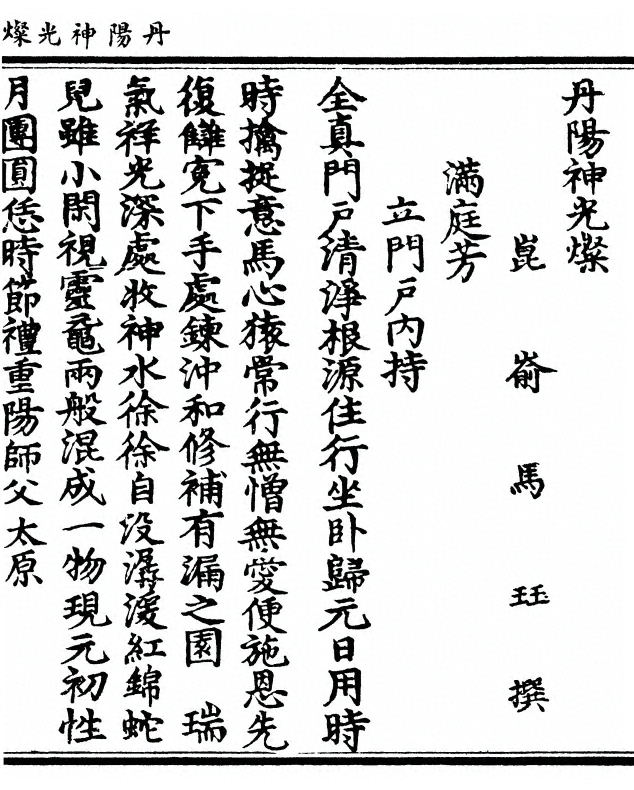 丹陽神光燦
丹陽神光燦
崑崙馬珏撰
滿庭芳
立門戶内持
全真門戶清淨根源住行坐卧歸元日用時
時擒捉意馬心猿常行無憎無愛便施恩先
復讎寃下手處鍊沖和修補有漏之園　瑞
氣祥光深處收神水徐徐自没潺湲紅錦蛇
兒雖小閑視靈龜兩般混成一物現元初性
月團圓恁時節禮重陽師父太原